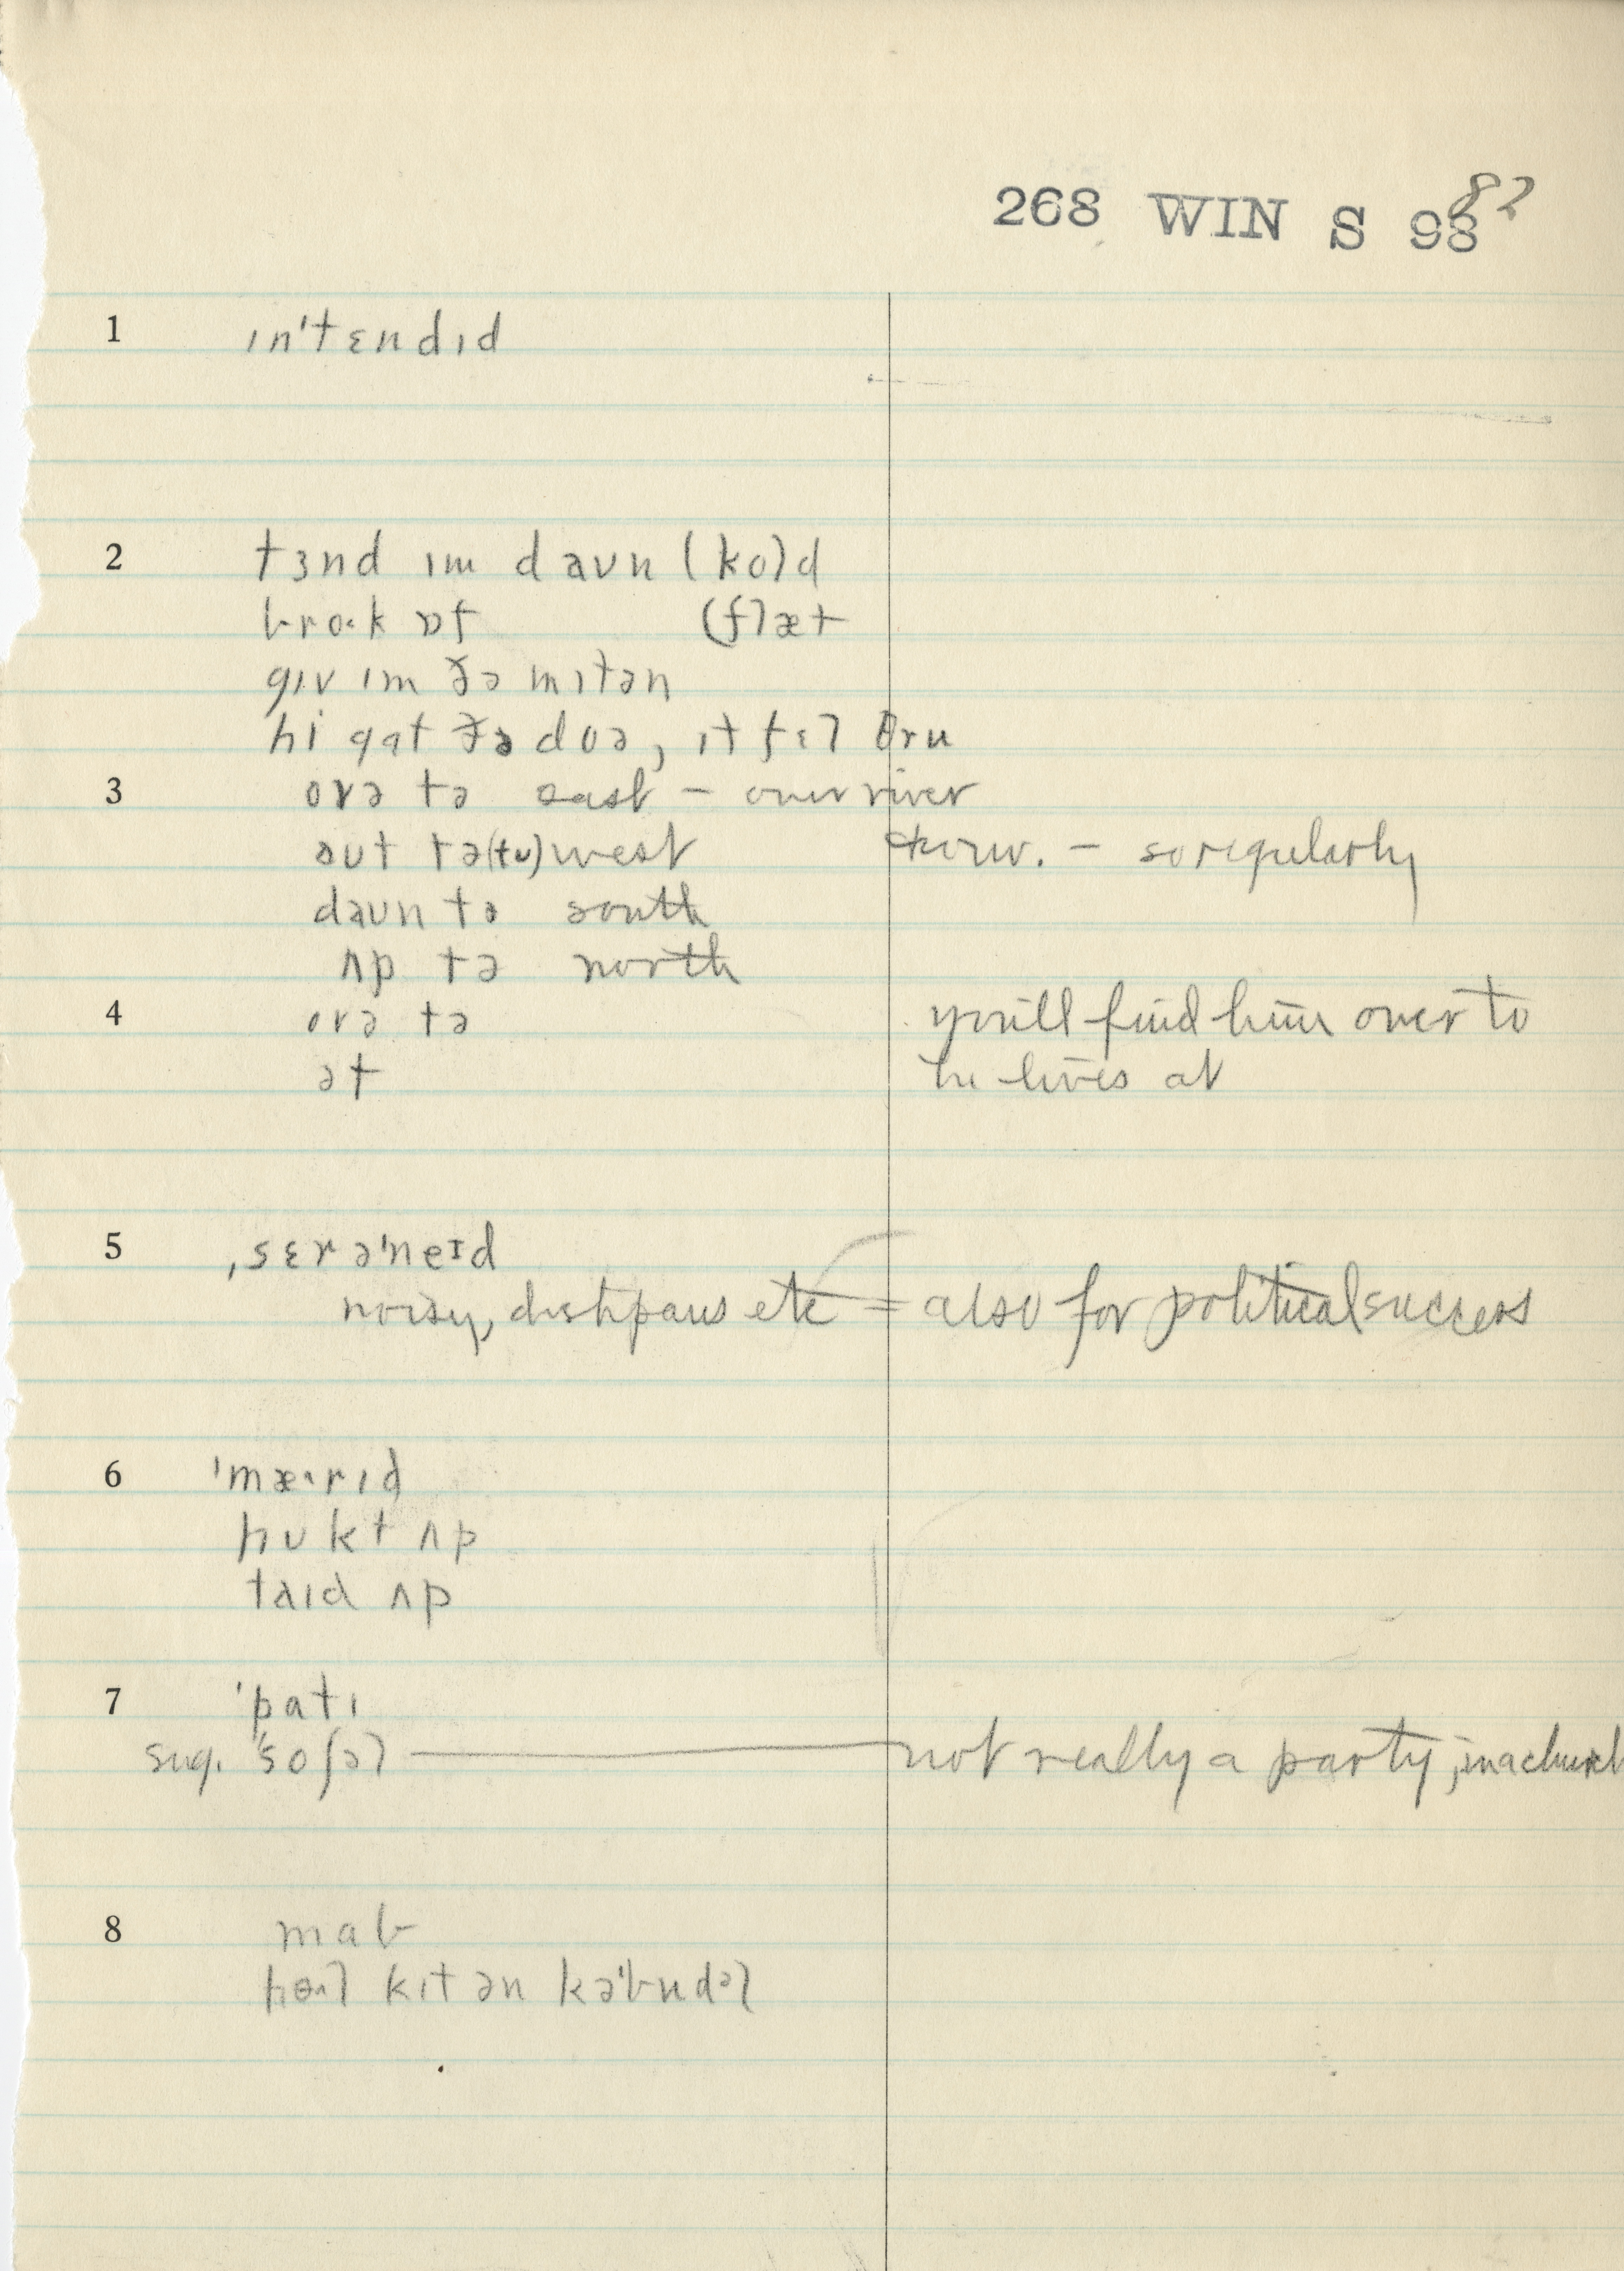 268 WIN S 98 82
1 ɪn'tɛndɪd
2 tɜnd ɪm daʊn (ko)d
brok ɒf (f)læt
gɪv ɪm ðə mɪtən
hi gat ðə doə, ɪt fɛl θru
3 ovə tə east – over river
aʊt tə(tu) west conv. – so regularly
daʊn tə south
ʌp tə north
4 ovə tə you'll find him over to
ət he lives at
5 ˌsɛrə'neɪd
noisy, dishpans etc = also for political success
6 'mæ·rɪd
hʊkt ʌp
taɪd ʌp
7 'patɪ
sug. 'soʃəl — not really a party, in a church
8 mab
hol kɪt ən kə'budəl